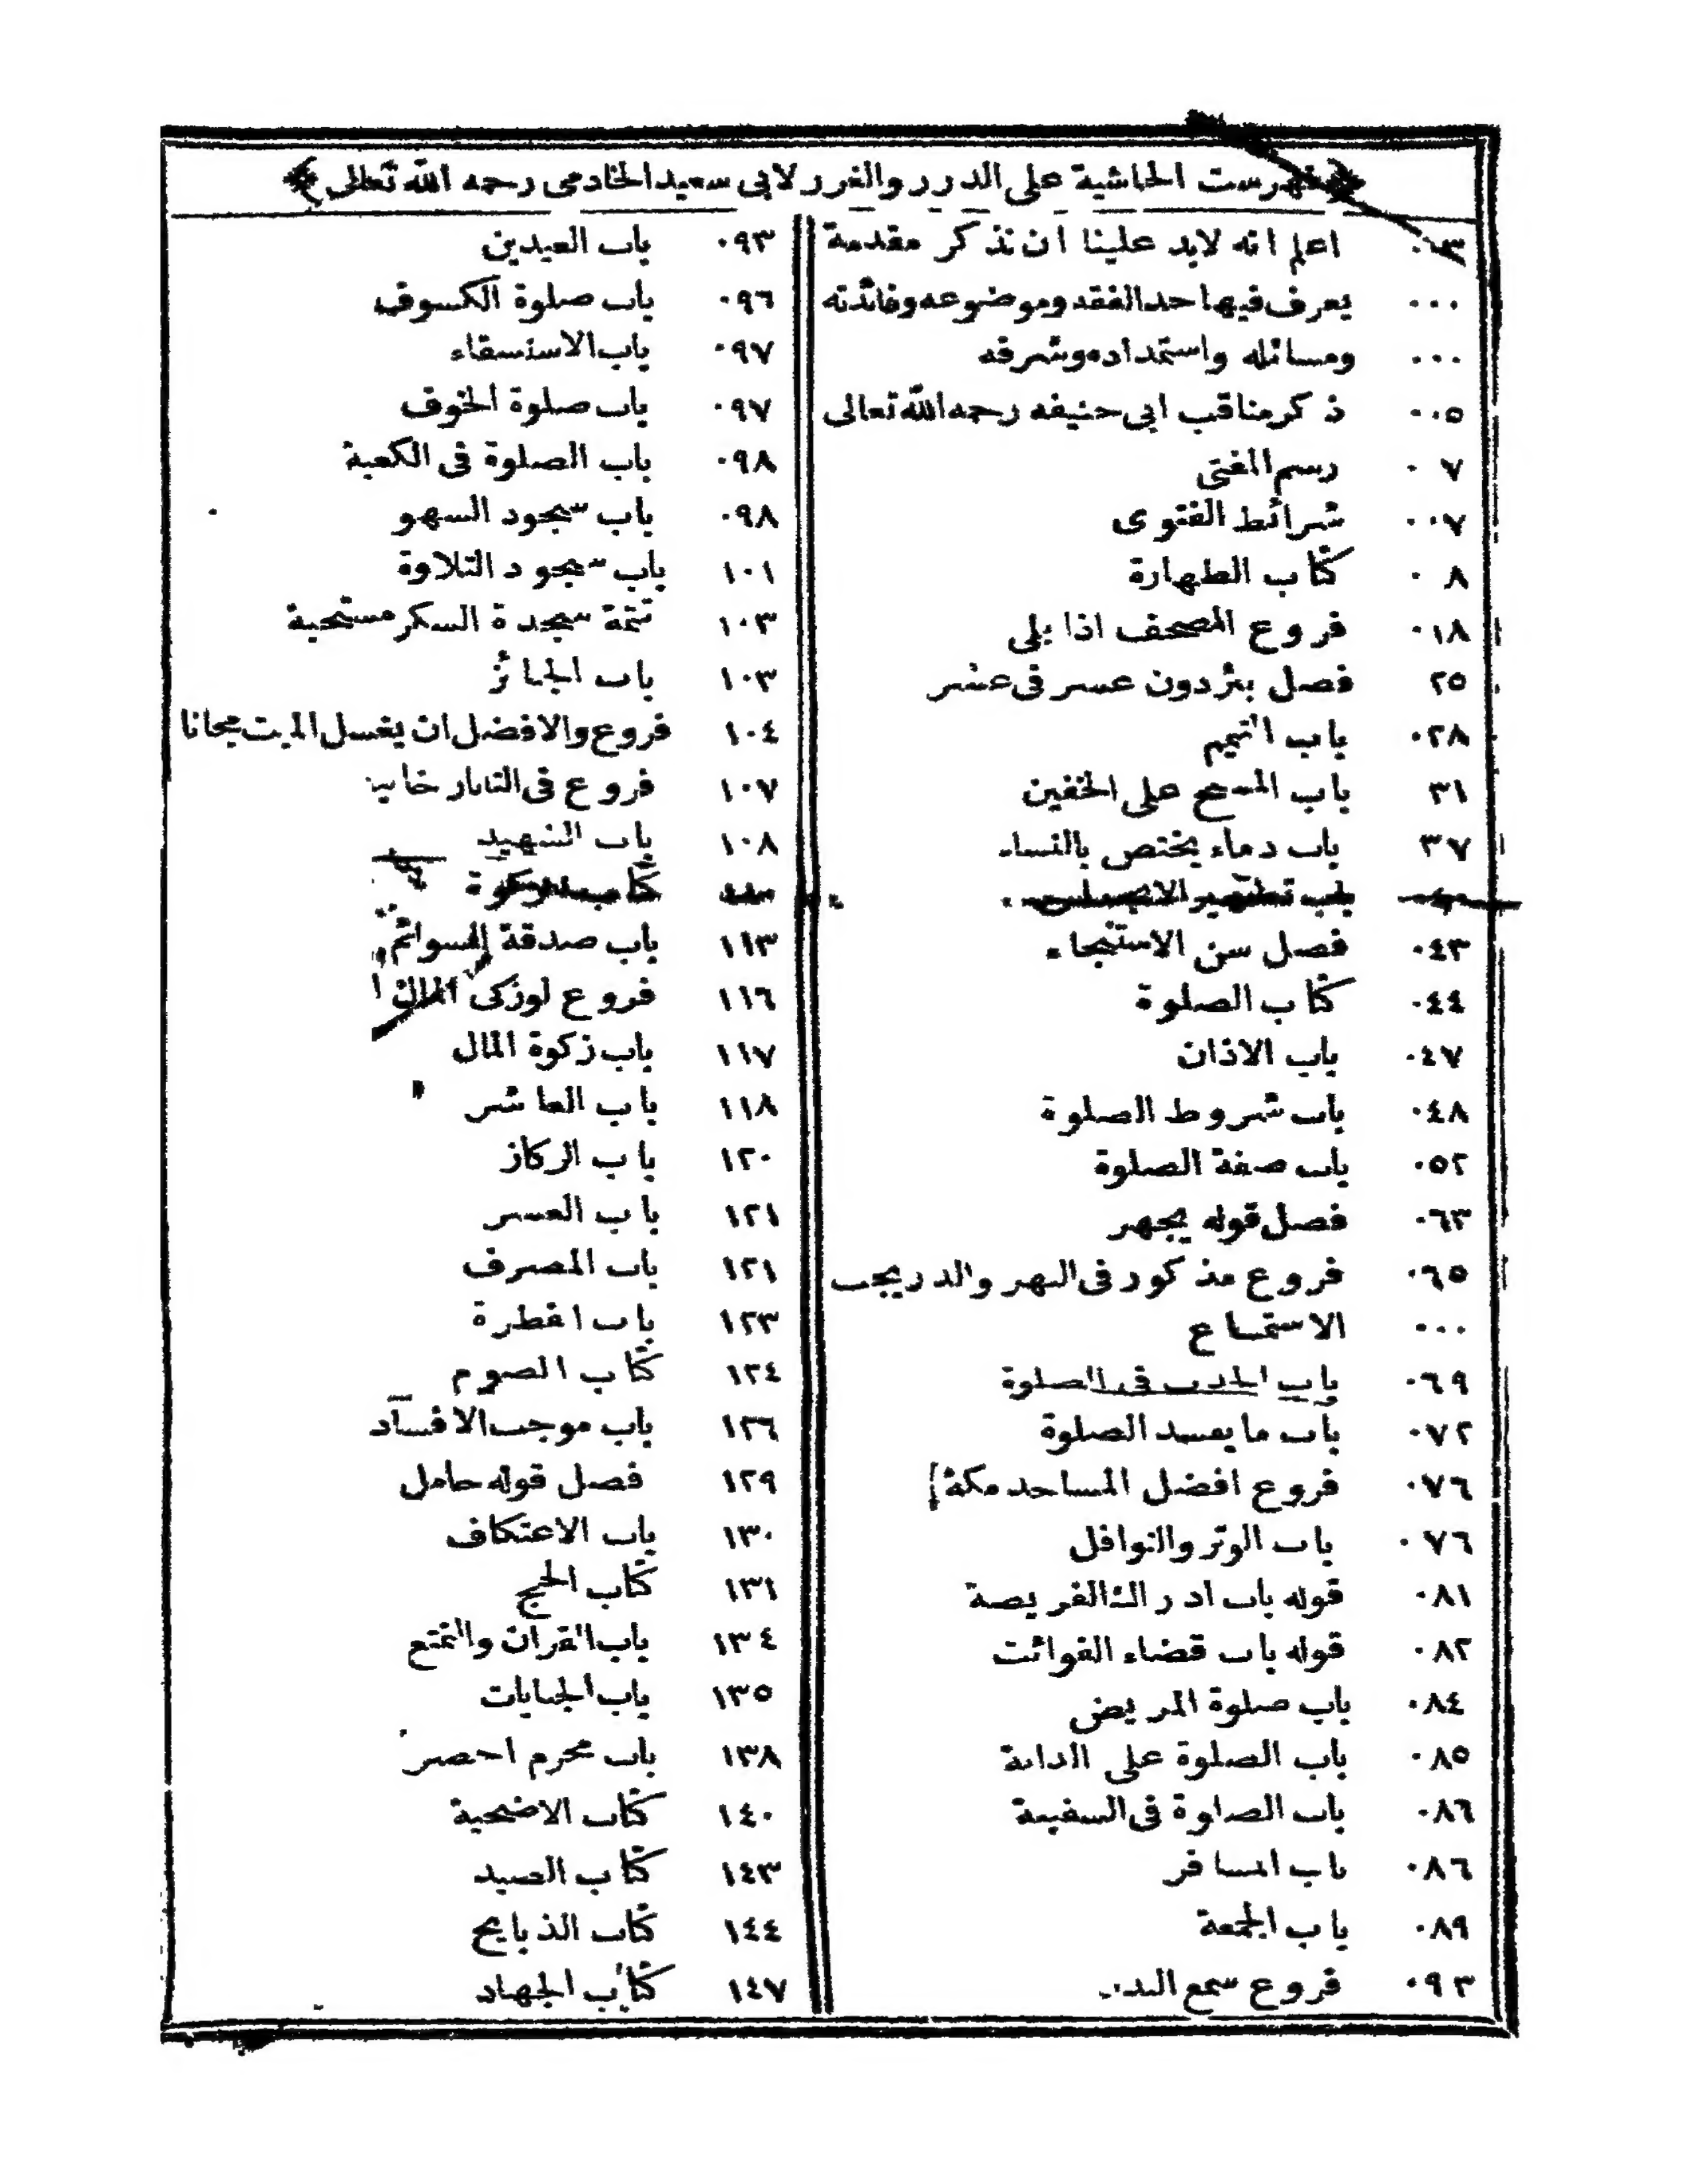 ﴿فهرست الحاشية على الدرر والغرر لابي سعيد الخادمى رحمه الله تعالى﴾
٠٠٣ اعلم انه لابد علينا ان نذكر مقدمة
٠٠٠ يعرف فيها حد الفقه وموضوعه وفائدته
٠٠٠ ومسائله واستمداده وشرفه
٠٠٥ ذكر مناقب ابى حنيفه رحمه الله تعالى
٠٧ رسم المفتى
٠٠٧ شرائط الفتوى
٠٨ كتاب الطهارة
٠١٨ فروع المصحف اذا بلى
٢٥ فصل بئر دون عسر فى عشر
٠٢٨ باب التيمم
٣١ باب المسح على الخفين
٣٧ باب دماء يختص بالنساء
باب تطهير الانجاس
٠٤٣ فصل سن الاستنجاء
٠٤٤ كتاب الصلوة
٠٤٧ باب الاذان
٠٤٨ باب شروط الصلوة
٠٥٢ باب صفة الصلوة
٠٦٣ فصل قوله يجهر
٠٦٥ فروع مذكور فى النهر والدر يجب
٠٠٠ الاستماع
٠٦٩ باب الحدث فى الصلوة
٠٧٢ باب ما يفسد الصلوة
٠٧٦ فروع افضل المساجد مكة
٠٧٦ باب الوتر والنوافل
٠٨١ قوله باب ادراك الفريضة
٠٨٢ قوله باب قضاء الفوائت
٠٨٤ باب صلوة المريض
٠٨٥ باب الصلوة على الدابة
٠٨٦ باب الصلوة فى السفينة
٠٨٦ باب المسافر
٠٨٩ باب الجمعة
٠٩٣ فروع سمع النداء
٠٩٣ باب العيدين
٠٩٦ باب صلوة الكسوف
٠٩٧ باب الاستسقاء
٠٩٧ باب صلوة الخوف
٠٩٨ باب الصلوة فى الكعبة
٠٩٨ باب سجود السهو
١٠١ باب سجود التلاوة
١٠٣ تتمة سجدة السكر مستحبة
١٠٣ باب الجنائز
١٠٤ فروع والافضل ان يغسل الميت مجانا
١٠٧ فروع فى التاتارخانيه
١٠٨ باب الشهيد
كتاب الزكوة
١١٣ باب صدقة السوائم
١١٦ فروع لوزكى المال
١١٧ باب زكوة المال
١١٨ باب العاشر
١٢٠ باب الركاز
١٢١ باب العسر
١٢١ باب المصرف
١٢٣ باب الفطرة
١٢٤ كتاب الصوم
١٢٦ باب موجب الافساد
١٢٩ فصل قوله حامل
١٣٠ باب الاعتكاف
١٣١ كتاب الحج
١٣٤ باب القران والتمتع
١٣٥ باب الجنايات
١٣٨ باب محرم احصر
١٤٠ كتاب الاضحية
١٤٣ كتاب الصيد
١٤٤ كتاب الذبايح
١٤٧ كتاب الجهاد